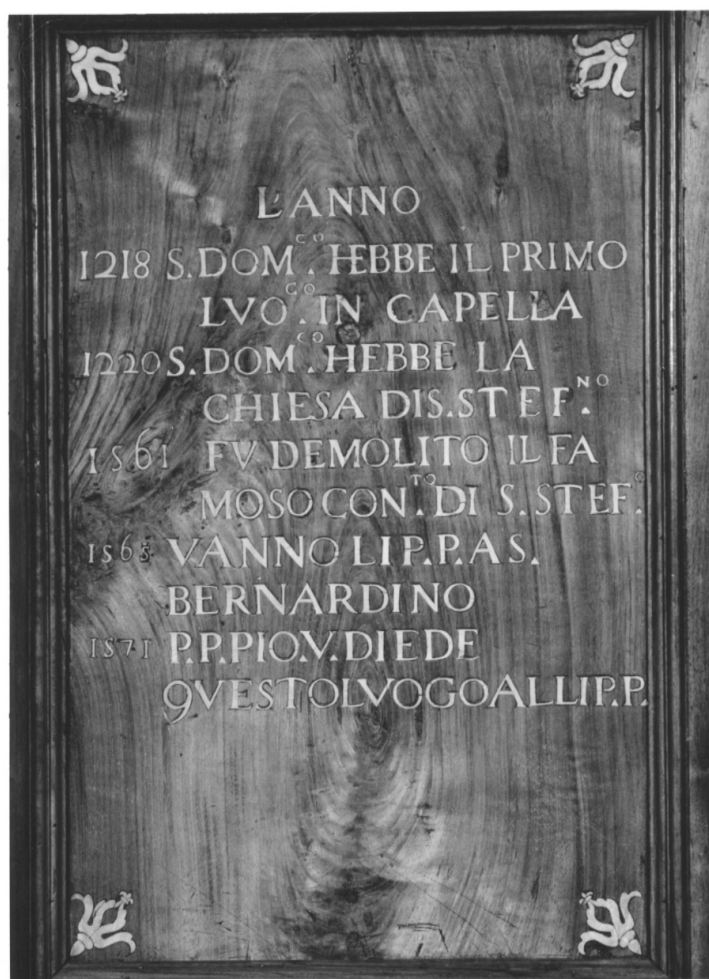 L'ANNO
1218 S. DOM.CO HEBBE IL PRIMO
LVO.CO IN CAPELLA
1220 S. DOM.CO HEBBE LA
CHIESA DI S. STEF.NO
1561 FV DEMOLITO IL FA
MOSO CON.TO DI S. STEF.O
1565 VANNO LI P.P. A S.
BERNARDINO
1571 P.P. PIO.V. DIEDE
QVESTO LVOGO ALLI P.P.